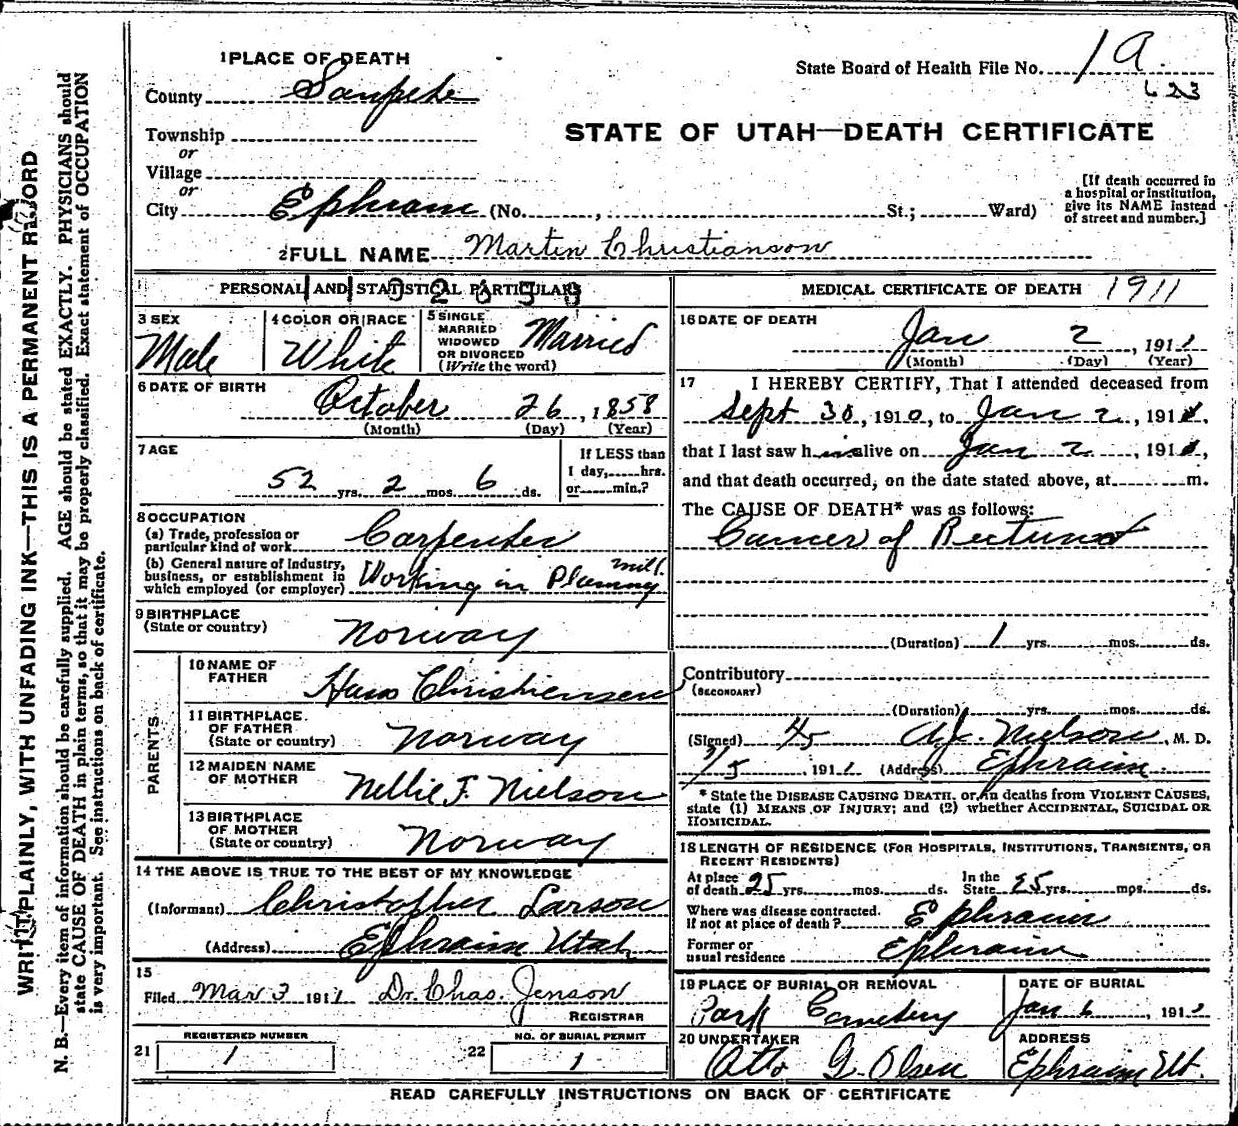 WRITE PLAINLY, WITH UNFADING INK—THIS IS A PERMANENT RECORD
N. B.—Every item of information should be carefully supplied. AGE should be stated EXACTLY. PHYSICIANS should
state CAUSE OF DEATH in plain terms, so that it may be properly classified. Exact statement of OCCUPATION
is very important. See instructions on back of certificate.
1 PLACE OF DEATH
State Board of Health File No. 1 A.
623
County Sanpete
STATE OF UTAH—DEATH CERTIFICATE
Township
or
Village
or
City Ephraim (No. , St.; Ward)
[If death occurred in
a hospital or institution,
give its NAME instead
of street and number.]
2 FULL NAME Martin Christianson
PERSONAL AND STATISTICAL PARTICULARS
3 SEX
Male
4 COLOR OR RACE
White
5 SINGLE
MARRIED
WIDOWED
OR DIVORCED
(Write the word)
Married
6 DATE OF BIRTH
October 26, 1858
(Month) (Day) (Year)
7 AGE
52 yrs. 2 mos. 6 ds.
If LESS than
1 day, hrs.
or min.?
8 OCCUPATION
(a) Trade, profession or
particular kind of work Carpenter
(b) General nature of Industry,
business, or establishment in
which employed (or employer) Working in Planing mill.
9 BIRTHPLACE
(State or country) Norway
PARENTS
10 NAME OF
FATHER Hans Christiensen
11 BIRTHPLACE
OF FATHER
(State or country) Norway
12 MAIDEN NAME
OF MOTHER Nellie F. Nielson
13 BIRTHPLACE
OF MOTHER
(State or country) Norway
14 THE ABOVE IS TRUE TO THE BEST OF MY KNOWLEDGE
(Informant) Christopher Larson
(Address) Ephraim Utah
15
Filed Mar 3 1911 Dr. Chas. Jenson
REGISTRAR
REGISTERED NUMBER
21 1
NO. OF BURIAL PERMIT
22 1
MEDICAL CERTIFICATE OF DEATH 1911
16 DATE OF DEATH
Jan 2, 1911
(Month) (Day) (Year)
17 I HEREBY CERTIFY, That I attended deceased from
Sept 30, 1910, to Jan 2, 1911,
that I last saw him alive on Jan 2, 1911,
and that death occurred, on the date stated above, at m.
The CAUSE OF DEATH* was as follows:
Cancer of Rectum
(Duration) 1 yrs. mos. ds.
Contributory
(SECONDARY)
(Duration) yrs. mos. ds.
(Signed) A.J. Nielson, M. D.
1/5, 1911 (Address) Ephraim.
* State the DISEASE CAUSING DEATH, or, in deaths from VIOLENT CAUSES,
state (1) MEANS OF INJURY; and (2) whether ACCIDENTAL, SUICIDAL OR
HOMICIDAL.
18 LENGTH OF RESIDENCE (FOR HOSPITALS, INSTITUTIONS, TRANSIENTS, OR
RECENT RESIDENTS)
At place
of death 25 yrs. mos. ds.
In the
State 25 yrs. mos. ds.
Where was disease contracted.
if not at place of death? Ephraim
Former or
usual residence Ephraim
19 PLACE OF BURIAL OR REMOVAL
Park Cemetery
DATE OF BURIAL
Jan 6, 1911
20 UNDERTAKER
Otto G. Olsen
ADDRESS
Ephraim Ut.
READ CAREFULLY INSTRUCTIONS ON BACK OF CERTIFICATE